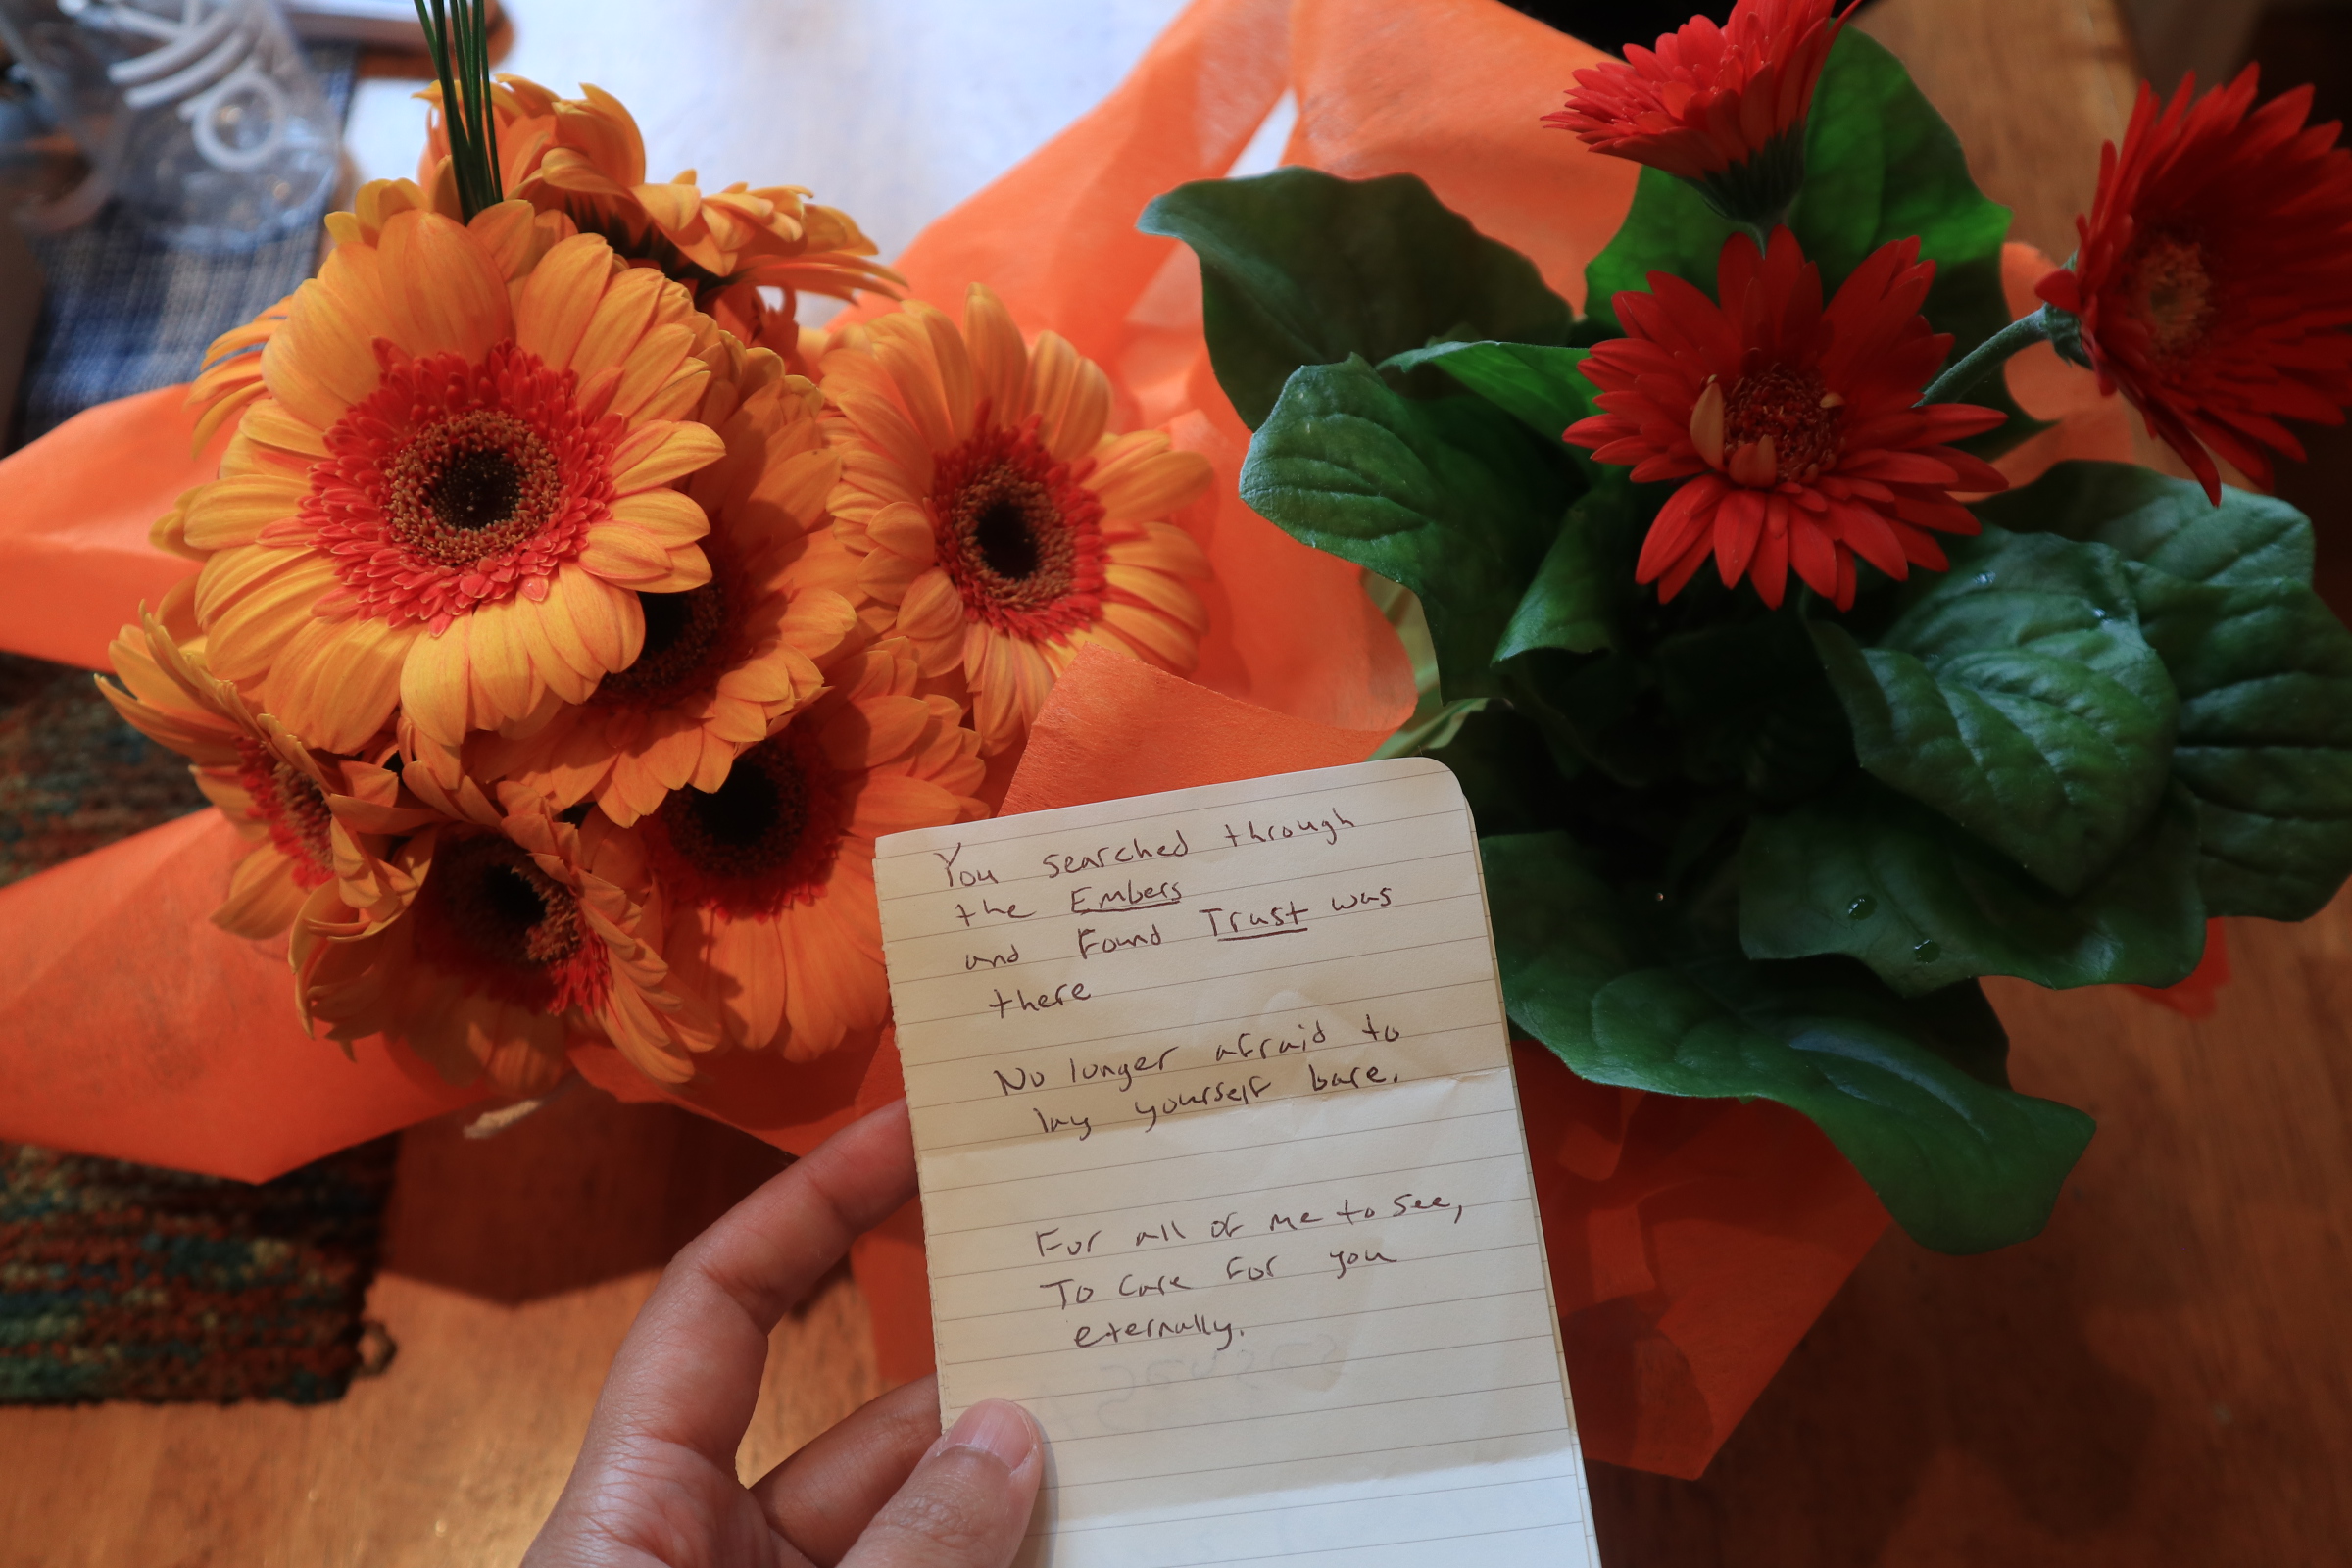 You searched through
the Embers
and Found Trust was
there
No longer afraid to
lay yourself bare.
For all of me to see,
To Care For you
eternally.